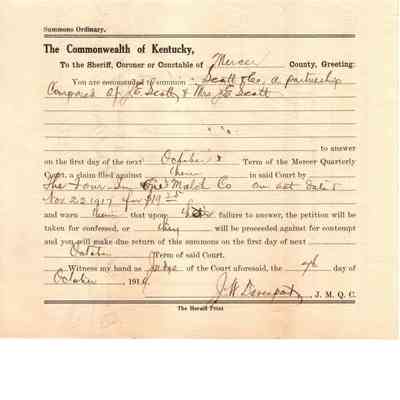 Summons Ordinary.
The Commonwealth of Kentucky,
To the Sheriff, Coroner or Constable of Mercer County, Greeting:
You are commanded to summon Scott & Co, a partnership
Composed of J.E. Scott & Mrs J.E. Scott
to answer
on the first day of the next October Term of the Mercer Quarterly
Court, a claim filed against them in said Court by
The Four-In One Mald Co on act dated
Nov 22 1917 for $19 25
and warn them that upon their failure to answer, the petition will be
taken for confessed, or they will be proceeded against for contempt
and you will make due return of this summons on the first day of next
October Term of said Court.
Witness my hand as Judge of the Court aforesaid, the 4th day of
October, 191
J.W. Davenport, J. M. Q. C.
The Herald Print